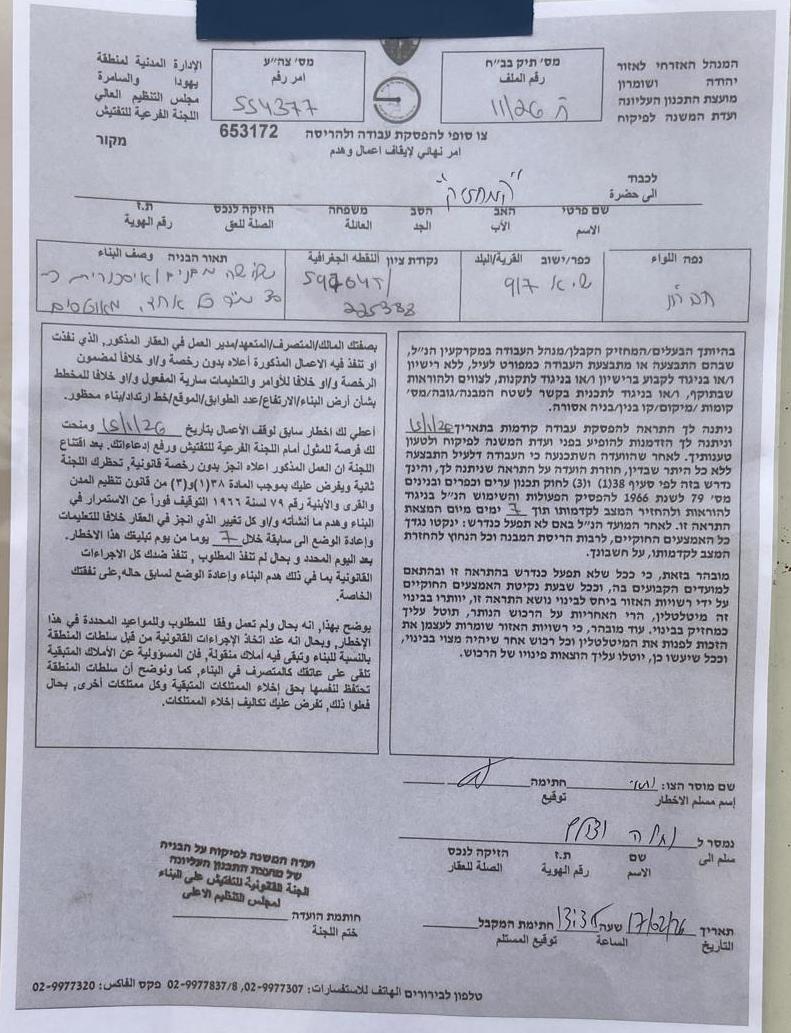 המנהל האזרחי לאזור
יהודה ושומרון
מועצת התכנון העליונה
ועדת המשנה לפיקוח
מס' תיק בב"ח
رقم الملف
ח 11/26
מס' צה"ע
امر رقم
554377
الإدارة المدنية لمنطقة
يهودا والسامرة
مجلس التنظيم العالي
اللجنة الفرعية للتفتيش
צו סופי להפסקת עבודה ולהריסה
653172
מקור
امر نهائي لإيقاف اعمال وهدم
לכבוד
الى حضرة
"המחזיק"
שם פרטי האב הסב משפחה הזיקה לנכס ת.ז
الاسم الأب الجد العائلة الصلة للعق رقم الهوية
נפה اللواء
חברון
כפר/ישוב القرية/البلد
נקודת ציון النقطه الجغرافية
597045/
225388
תאור הבניה وصف البناء
שלושה מבנים
30 מ"ר כל אחד.
בהיותך הבעלים/המחזיק הקבלן/מנהל העבודה במקרקעין הנ"ל,
שבהם התבצעה או מתבצעת העבודה כמפורט לעיל, ללא רישיון
ו/או בניגוד לקבוע ברישיון ו/או בניגוד לתקנות, לצווים ולהוראות
שבתוקף, ו/או בניגוד לתכנית בקשר לשטח המבנה/גובה/מס'
קומות /מיקום/קו בנין/בניה אסורה.
ניתנה לך התראה להפסקת עבודה קודמות בתאריך 15/1/26
וניתנה לך הזדמנות להופיע בפני ועדת המשנה לפיקוח ולטעון
טענותיך. לאחר שהוועדה השתכנעה כי העבודה דלעיל התבצעה
ללא כל היתר שבדין, חוזרת הועדה על התראה שניתנה לך, והינך
נדרש בזה לפי סעיף 38(1) ו(3) לחוק תכנון ערים כפרים ובנינים
מס' 79 לשנת 1966 להפסיק הפעולות והשימוש הנ"ל בניגוד
להוראות ולהחזיר המצב לקדמותו תוך 7 ימים מיום המצאת
התראה זו. לאחר המועד הנ"ל באם לא תפעל כנדרש: ינקטו נגדך
כל האמצעים החוקיים, לרבות הריסת המבנה וכל הנחוץ להחזרת
המצב לקדמותו, על חשבונך.
מובהר בזאת, כי ככל שלא תפעל כנדרש בהתראה זו ובהתאם
למועדים הקבועים בה, וככל שבעת נקיטת האמצעים החוקיים
על ידי רשויות האזור ביחס לבינוי נושא התראה זו, יוותרו בבינוי
זה מיטלטלין, הרי האחריות על הרכוש הנותר, תוטל עליך
כמחזיק בבינוי. עוד מובהר, כי רשויות האזור שומרות לעצמן את
הזכות לפנות את המיטלטלין וכל רכוש אחר שיהיה מצוי בבינוי,
וככל שיעשו כן, יוטלו עליך הוצאות פינויו של הרכוש.
بصفتك المالك/المتصرف/المتعهد/مدير العمل في العقار المذكور, الذي نفذت
او تنفذ فيه الاعمال المذكورة أعلاه بدون رخصة و/او خلافا لمضمون
الرخصة و/او خلافا للأوامر والتعليمات سارية المفعول و/او خلافا للمخطط
بشأن أرض البناء/الارتفاع/عدد الطوابق/الموقع/خط ارتداد/بناء محظور.
أعطي لك اخطار سابق لوقف الأعمال بتاريخ 15/1/26 ومنحت
لك فرصة للمثول أمام اللجنة الفرعية للتفتيش ورفع إدعاءاتك. بعد اقتناع
اللجنة ان العمل المذكور اعلاه انجز بدون رخصة قانونية, تحظرك اللجنة
ثانية ويفرض عليك بموجب المادة ٣٨(١)و(٣) من قانون تنظيم المدن
والقرى والأبنية رقم ٧٩ لسنة ١٩٦٦ التوقيف فوراً عن الاستمرار في
البناء وهدم ما أنشأته و/او كل تغيير الذي انجز في العقار خلافا للتعليمات
وإعادة الوضع الى سابقة خلال 7 يوما من يوم تبليغك هذا الاخطار.
بعد اليوم المحدد و بحال لم تنفذ المطلوب , تنفذ ضدك كل الاجراءات
القانونية بما في ذلك هدم البناء وإعادة الوضع لسابق حاله, على نفقتك
الخاصة.
يوضح بهذا, انه بحال ولم تعمل وفقا للمطلوب وللمواعيد المحددة في هذا
الإخطار, وبحال انه عند اتخاذ الإجراءات القانونية من قبل سلطات المنطقة
بالنسبة للبناء وتبقى فيه أملاك منقولة, فان المسؤولية عن الأملاك المتبقية
تلقى على عاتقك كالمتصرف في البناء, كما ونوضح أن سلطات المنطقة
تحتفظ لنفسها بحق إخلاء الممتلكات المتبقية وكل ممتلكات أخرى, بحال
فعلوا ذلك, تفرض عليك تكاليف إخلاء الممتلكات.
שם מוסר הצו: חתימה
إسم مسلم الاخطار توقيع
נמסר ל
سلم الى
שם ת.ז הזיקה לנכס
الاسم رقم الهوية الصلة للعقار
ועדה המשנה לפיקוח על הבניה
של מועצת התכנון העליונה
اللجنة القانونية للتفتيش على البناء
لمجلس التنظيم الاعلى
חותמת הועדה
ختم اللجنة
תאריך 17/02/26 שעה חתימת המקבל
التاريخ الساعة توقيع المستلم
טלפון לבירורים الهاتف للاستفسارات: 02-9977307, 02-9977837/8 פקס الفاكس: 02-9977320